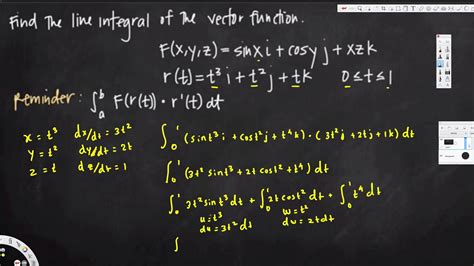 Find the line integral of the vector function.
F(x,y,z) = sinx i + cosy j + xz k
r(t) = t³ i + t² j + t k 0 ≤ t ≤ 1
Reminder: ∫ₐᵇ F(r(t)) • r'(t) dt
x = t³ dx/dt = 3t² ∫₀¹ (sint³ i + cost² j + t⁴ k) · (3t² i + 2t j + 1k) dt
y = t² dy/dt = 2t
z = t dz/dt = 1 ∫₀¹ (3t² sint³ + 2t cost² + t⁴) dt
∫₀¹ 3t² sint³ dt + ∫₀¹ 2t cost² dt + ∫₀¹ t⁴ dt
u = t³ w = t²
du = 3t² dt dw = 2t dt
∫